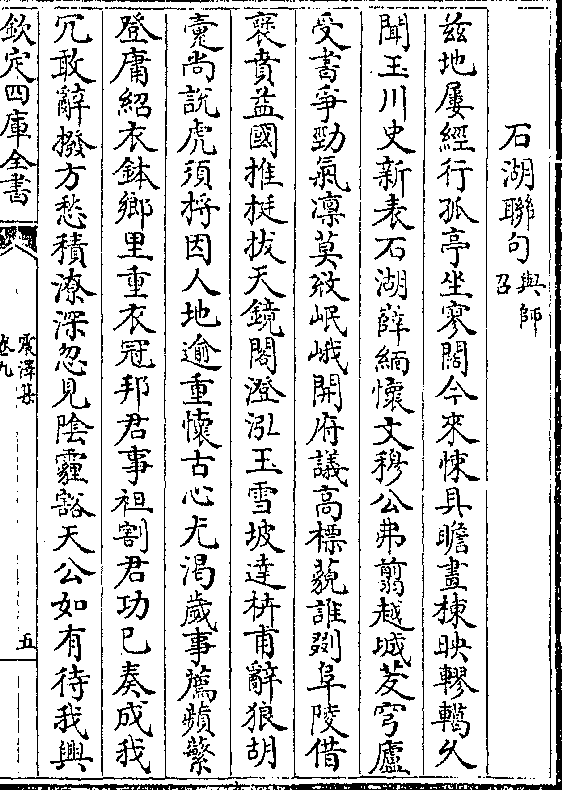 石湖聯句與師召
兹地屢經行孤亭坐寥闊今來悚具瞻畫棟映轇轕久
聞玉川史新表石湖薛緬懷文穆公弗翦越城茇穹廬
受書爭勁氣凛莫紋岷峨開府議高標藐誰刿阜陵借
褒賁益國推挺拔天鏡閣澄泓玉雪坡達枿甫辭狼胡
疐尚說虎須捋因人地逾重懷古心尤渴歲事薦蘋蘩
登庸紹衣鉢鄉里重衣冠邦君事袒割君功已奏成我
冗敢辭撥方愁積潦深忽見陰霾豁天公如有待我興
欽定四庫全書
震澤集
卷九
五